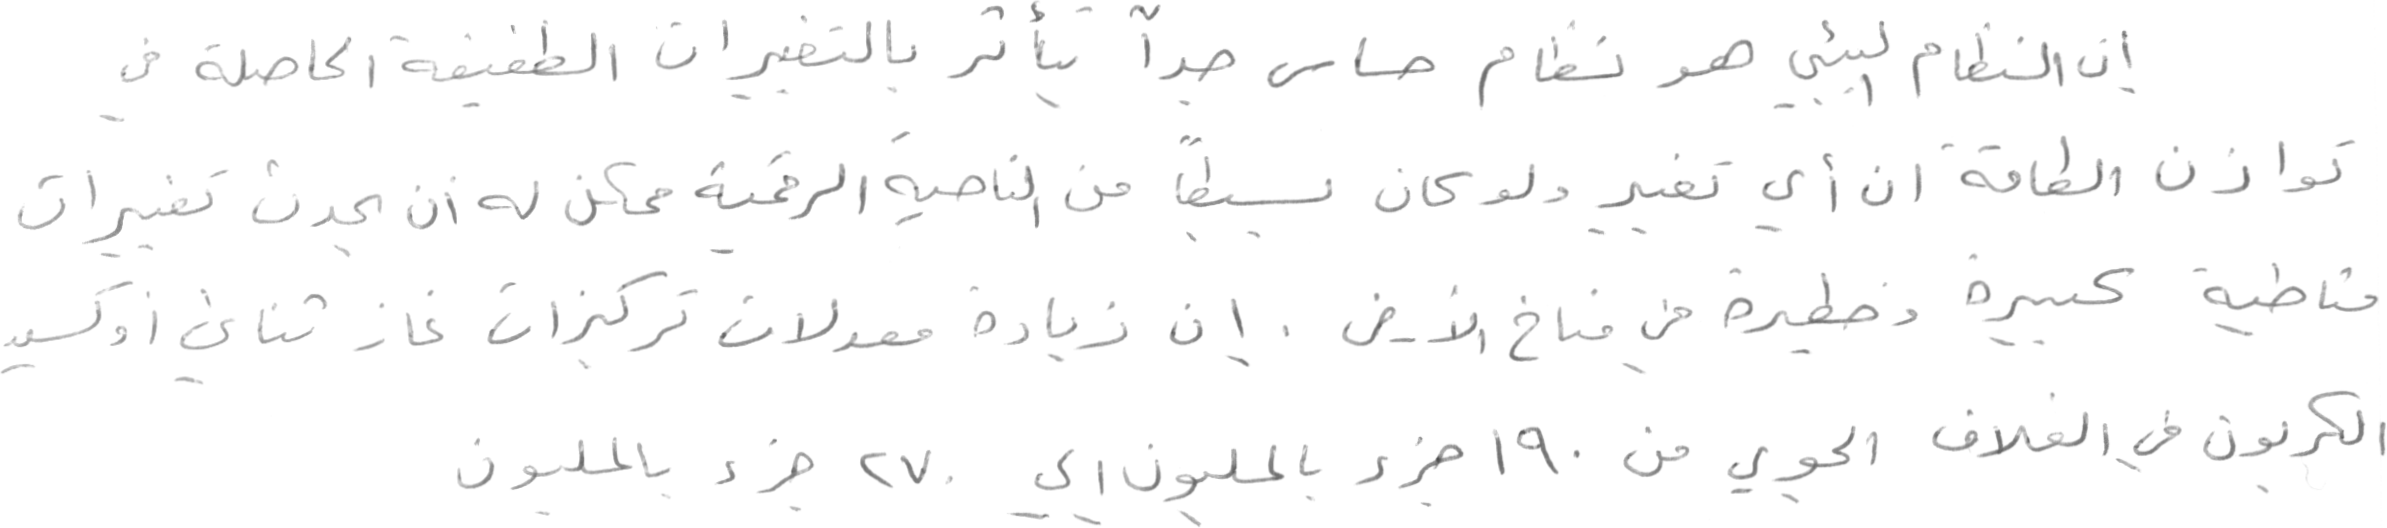 إن النظام البيئي هو نظام حساس جداً يتأثر بالتغيرات الطفيفة الحاصلة في
توازن الطاقة ان أي تغيير ولو كان بسيطاً من الناحية الرقمية ممكن له أن يحدث تغييرات
مناخية كبيرة وخطيرة في مناخ الأرض . إن زيادة معدلات تركيزات غاز ثنائي أوكسيد
الكربون في الغلاف الجوي من ١٩٠ جزء بالمليون الى ٢٧٠ جزء بالمليون